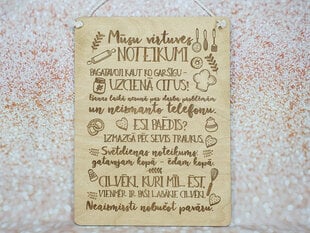 Mūsu virtuves
NOTEIKUMI
PAGATAVOJI KAUT KO GARŠĪGU -
UZCIENĀ CITUS!
Runas laikā par darba problēmām
un neizmanto telefonu.
ESI PAĒDIS?
IZMAZGĀ PĒC SEVIS TRAUKUS.
Svētdienas noteikums
gatavojam kopā - ēdam kopā.
CILVĒKI, KURI MĪL ĒST,
VIENMĒR IR PAŠI LABĀKIE CILVĒKI.
Neaizmirsti nobučot pavāru.